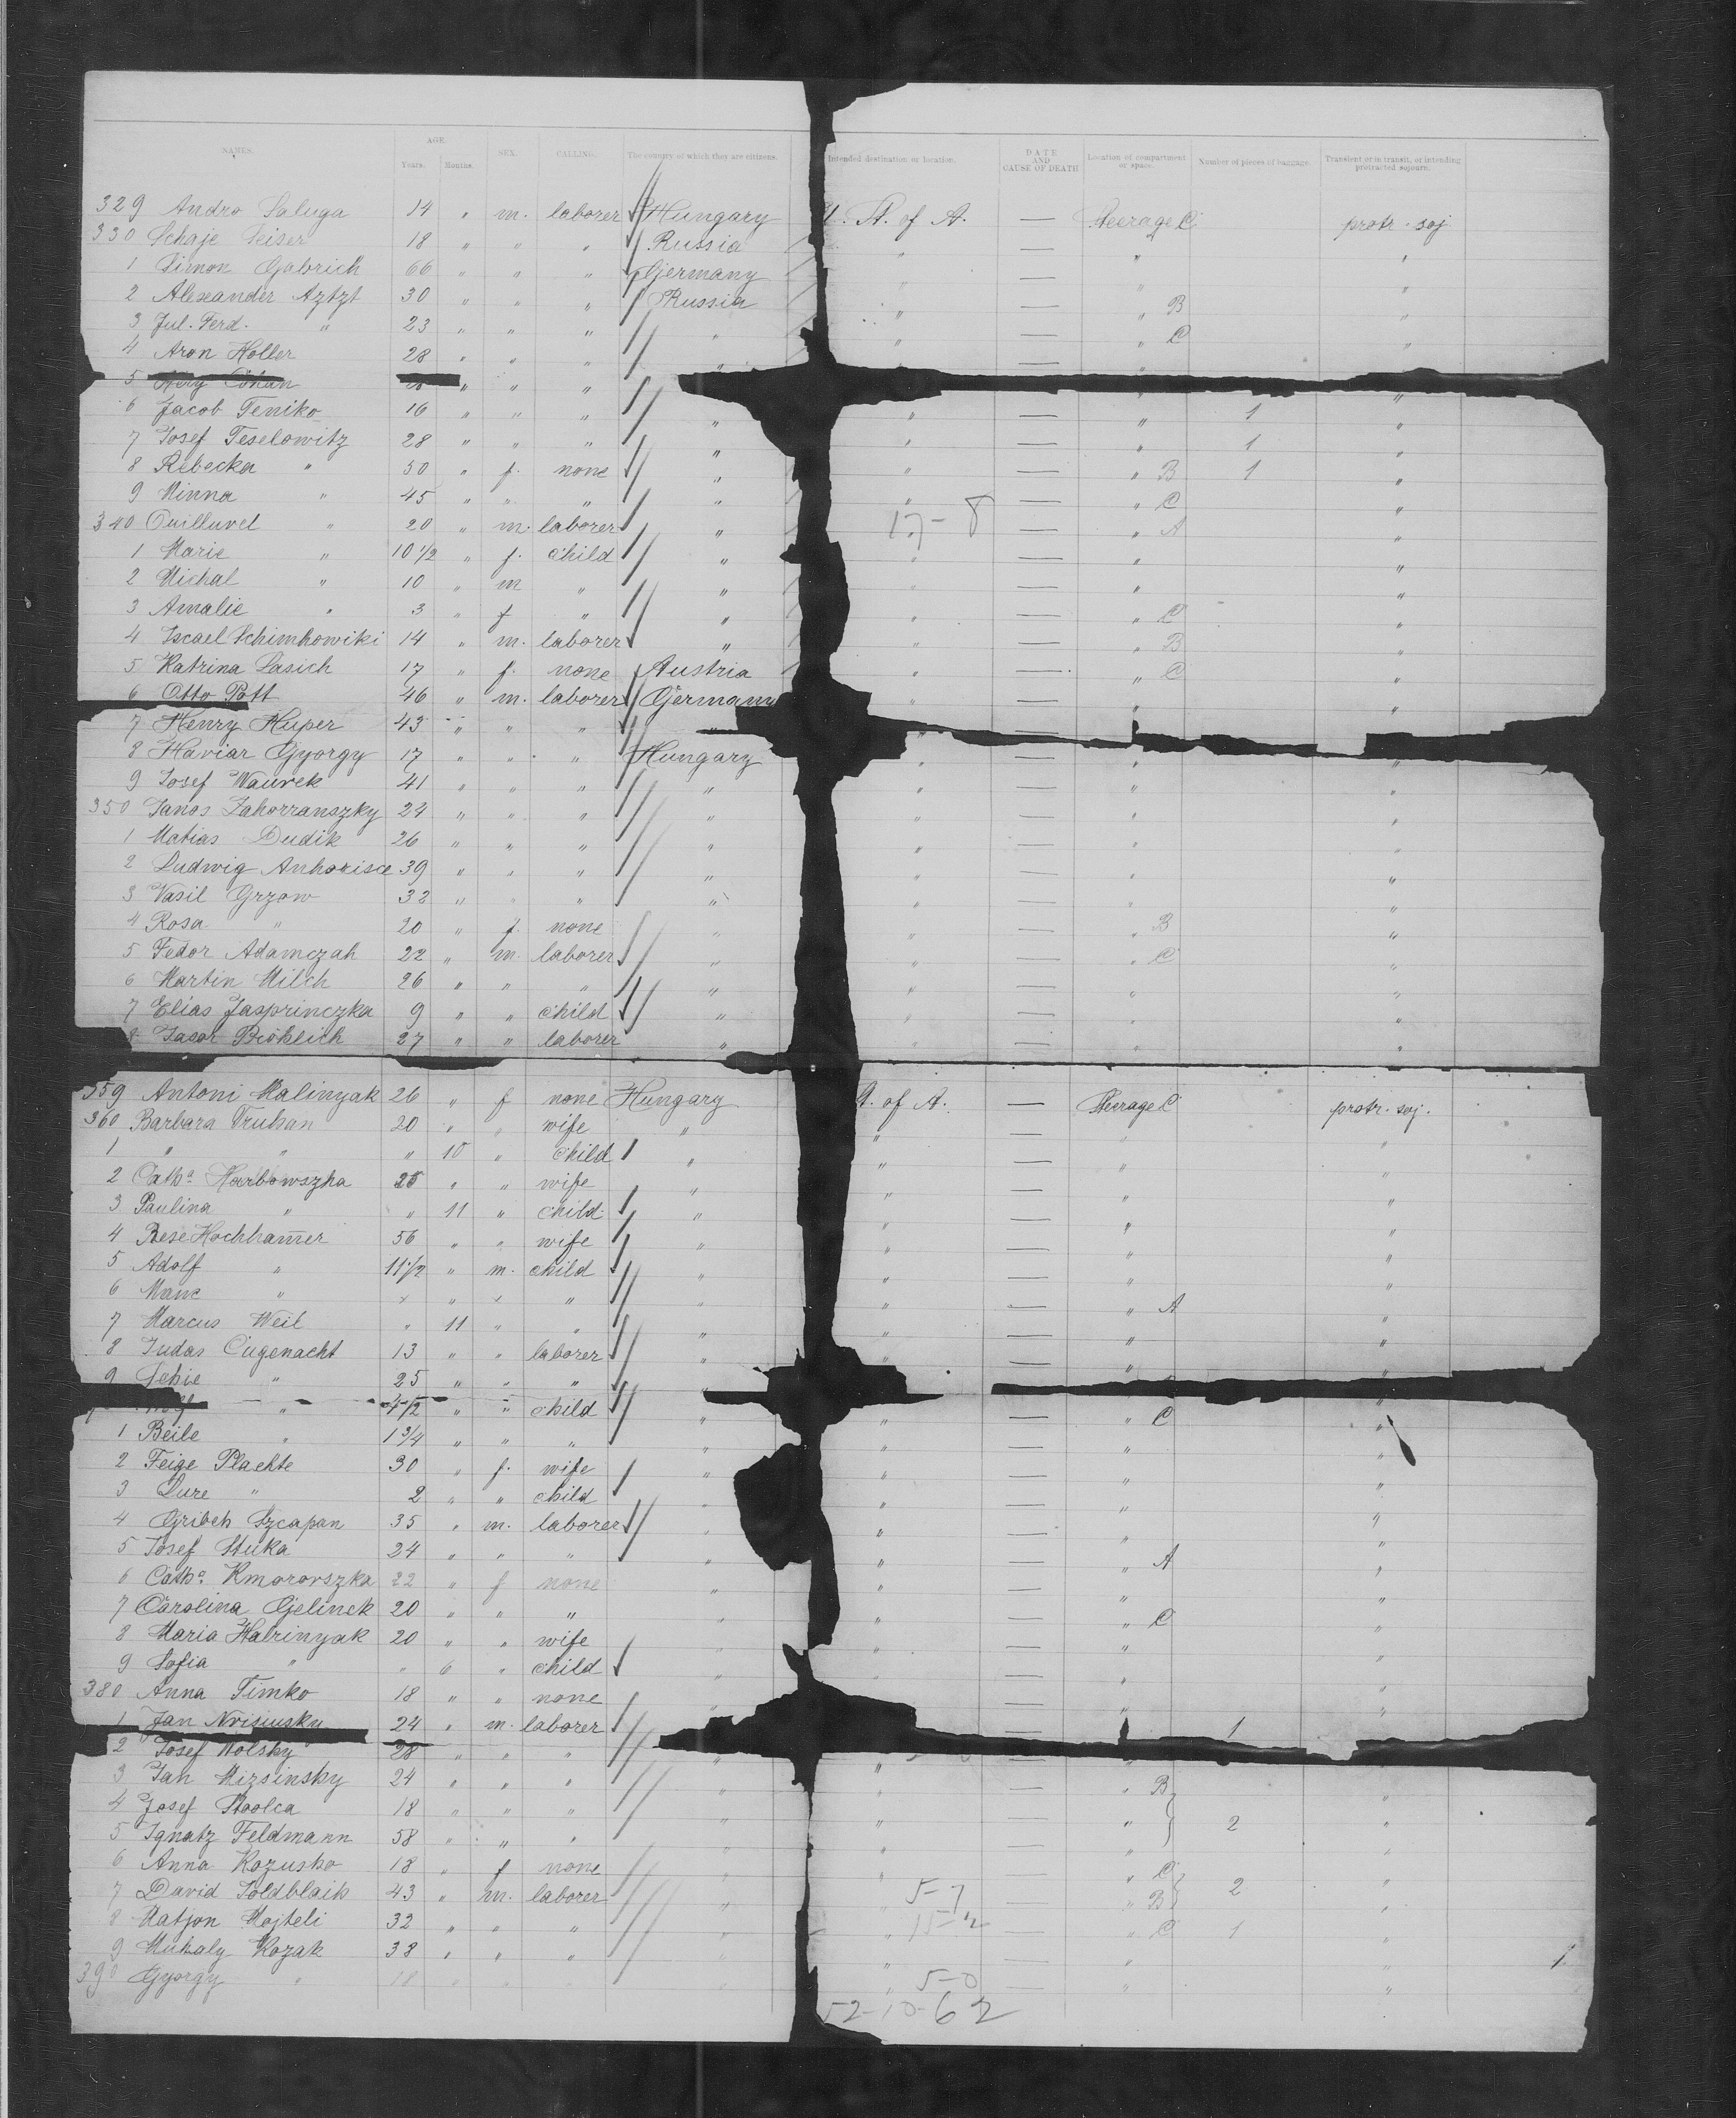 NAMES. AGE. Years. Months. SEX. CALLING. The country of which they are citizens. Intended destination or location. DATE AND CAUSE OF DEATH Location of compartment or space. Number of pieces of baggage. Transient or in transit, or intending protracted sojourn.
329 Andro Saluga 14 " m. laborer Hungary U. St. of A. — Steerage C protr. soj
330 Schaje Leiser 18 " " " Russia " — " "
1 Simon Gabrich 66 " " " Germany " — " "
2 Alexander Aztzt 30 " " " Russia " — " B "
3 Jul. Ferd. " 23 " " " " " — " C "
4 Aron Holler 28 " " " " —
5 Cohan " " " "
6 Jacob Teniko 16 " " " " " — " 1 "
7 Josef Teselowitz 28 " " " " " — " 1 "
8 Rebecka " 50 " f. none " " — " B 1 "
9 Minna " 45 " " " " " — " C "
340 " 20 " m. laborer " 17-8 — " A "
1 Marie " 10 1/2 " f. child " " — " "
2 Michal " 10 " m " " " — " "
3 Amalie " 3 " f " " " — " C "
4 Iscael Schimkowiki 14 " m. laborer " " — " B "
5 Katrina Lasich 17 " f. none Austria " — " C "
6 Otto Pott 46 " m. laborer Germany " — " "
7 Henry Huper 43 " " " " "
8 Haviar Gyorgy 17 " " " Hungary " — " "
9 Josef Waurek 41 " " " " " — " "
350 Janos Zahorranszky 24 " " " " " — " "
1 Matias Dudik 26 " " " " " — " "
2 Ludwig Anhorisce 39 " " " " " — " "
3 Vasil Grzow 32 " " " " " — " "
4 Rosa " 20 " f. none " " — " B "
5 Fedor Adamczah 22 " m. laborer " " — " C "
6 Martin Milch 26 " " " " " — " "
7 Elias Jasprinczka 9 " " child " " — " "
8 27 " " laborer " " — " "
359 Antoni Malinyak 26 " f none Hungary of A. — Steerage C protr. soj.
360 Barbara Truhan 20 " " wife " " — " "
1 " " " 10 " child " " — " "
2 Catha Harbowszha 25 " " wife " " — " "
3 Paulina " " 11 " child " " — " "
4 Rese Hochham̄er 56 " " wife " " — " "
5 Adolf " 11 1/2 " m. child " " — " "
6 " " " " " " " — " A "
7 Marcus Weil " 11 " " " " — " "
8 Judas Cugenacht 13 " " laborer " " — " "
9 " 25 " " " "
" 4 1/2 " " child " " — " C "
1 Beile " 1 3/4 " " " " " — " "
2 Feige Plachte 30 " f. wife " " — " "
3 Lure " 2 " " child " " — " "
4 Gribeh Szcapan 35 " m. laborer " " — " "
5 Josef Stuka 24 " " " " " — " A "
6 Catha Kmororszka 22 " f none " " — " "
7 Carolina Gjelinek 20 " " " " " — " C "
8 Maria Halrinyak 20 " " wife " " — " "
9 Sofia " " 6 " child " " — " "
380 Anna Timko 18 " " none " — " "
1 Jan 24 " m. laborer — 1
2 Josef Wolsky 28 " " " " " — "
3 Jan Mizsinsky 24 " " " " " — " B "
4 Josef 18 " " " " " — " 2 "
5 Ignatz Feldmann 58 " " " " " — " "
6 Anna Kozusko 18 " f none " " — " C "
7 David Toldblaih 43 " m. laborer " 5-7 — " B 2 "
8 Matjon Mojteli 32 " " " " " — " C 1 "
9 Mihaly Kozak 38 " " " " " — " " 1
390 Gyorgy " 18 " " " " 5-0 — " "
52-10-62